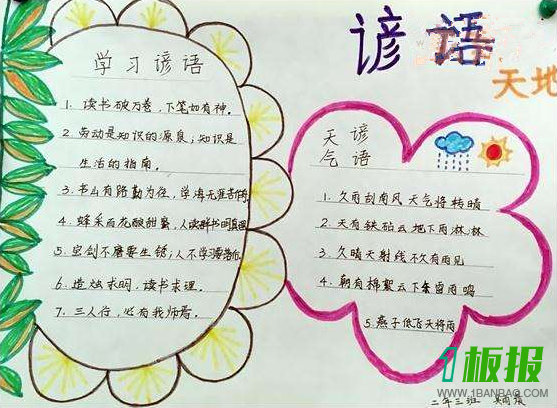 谚语
天地
学习谚语
1. 读书破万卷，下笔如有神。
2. 劳动是知识的源泉；知识是
生活的指南。
3. 书山有路勤为径，学海无涯苦作
4. 蜂采百花酿甜蜜，人读群书明真理
5. 宝剑不磨要生锈；人不学习要落伍
6. 造烛求明，读书求理。
7. 三人行，必有我师焉。
天气
谚语
1. 久雨刮南风天气将转晴
2. 天有铁砧云地下雨淋淋
3. 久晴天射线不久有雨见
4. 朝有棉絮云下午雷雨鸣
5. 燕子低飞天将雨
二年三班
1板报
WWW.1BANBAO.COM